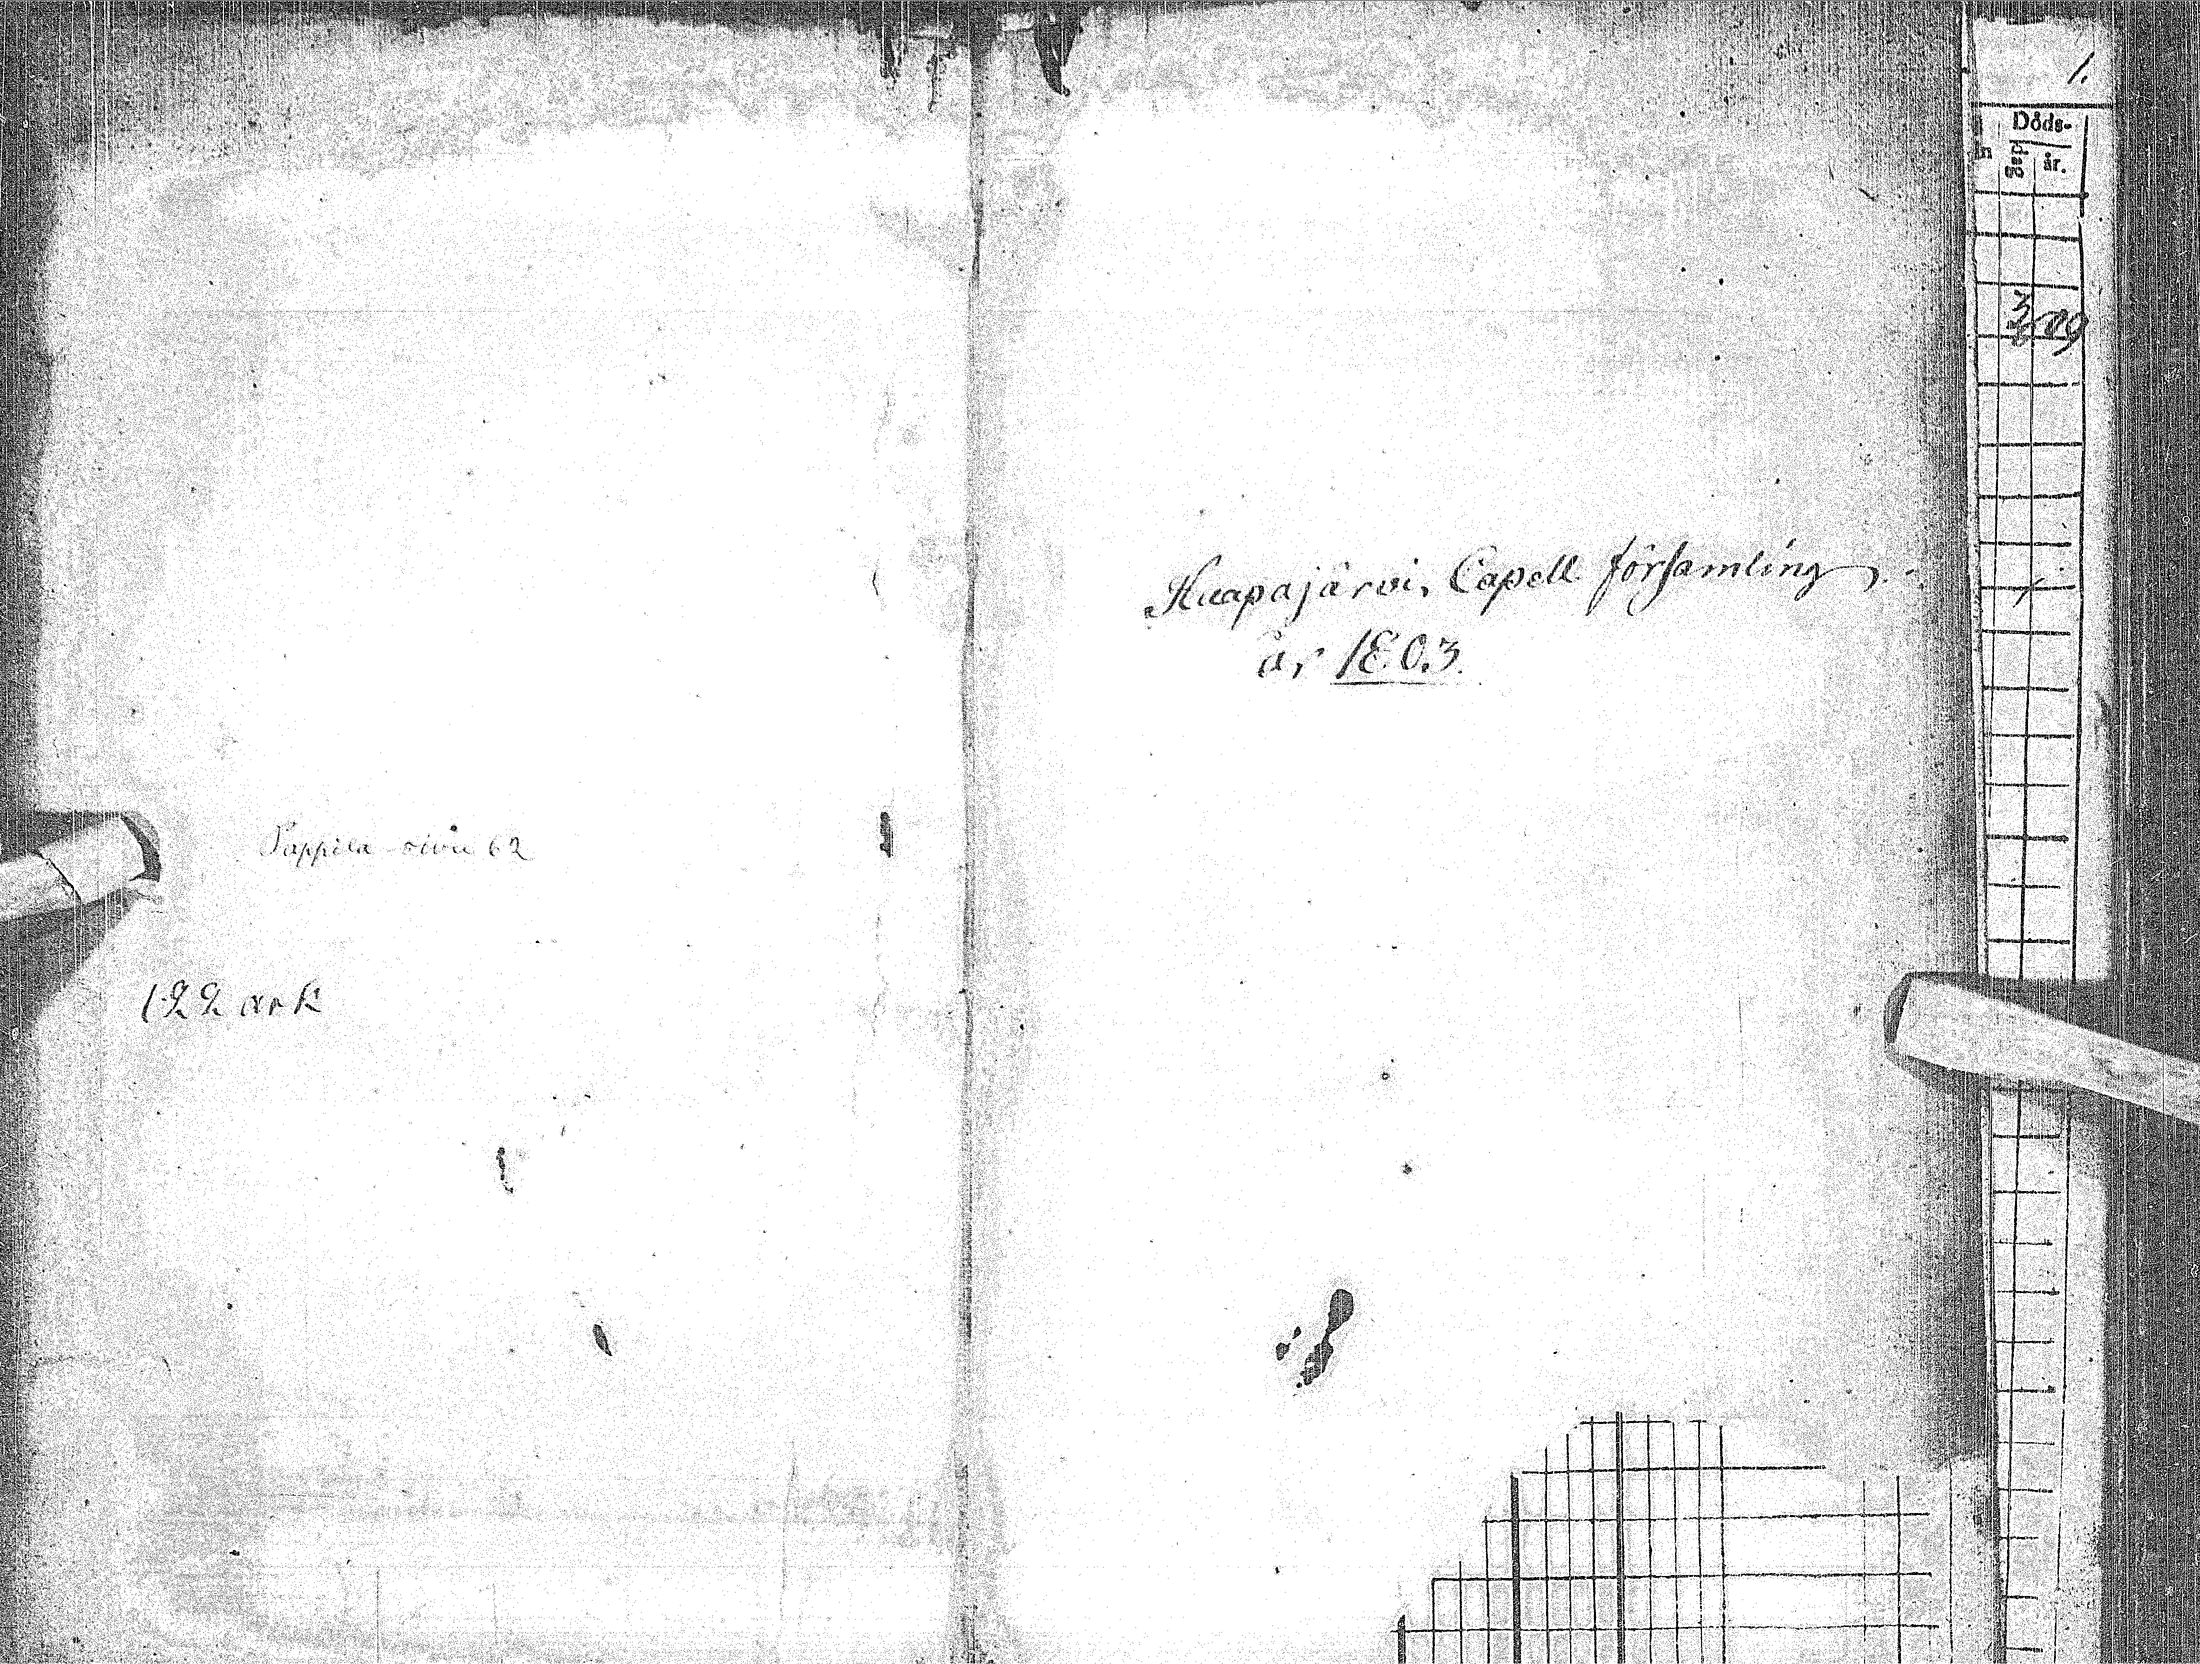 Pappila sivu 62
122 ark
Haapajärvi, Capell församling
år 1803.
1.
Döds-
dag
år.
3/8 09